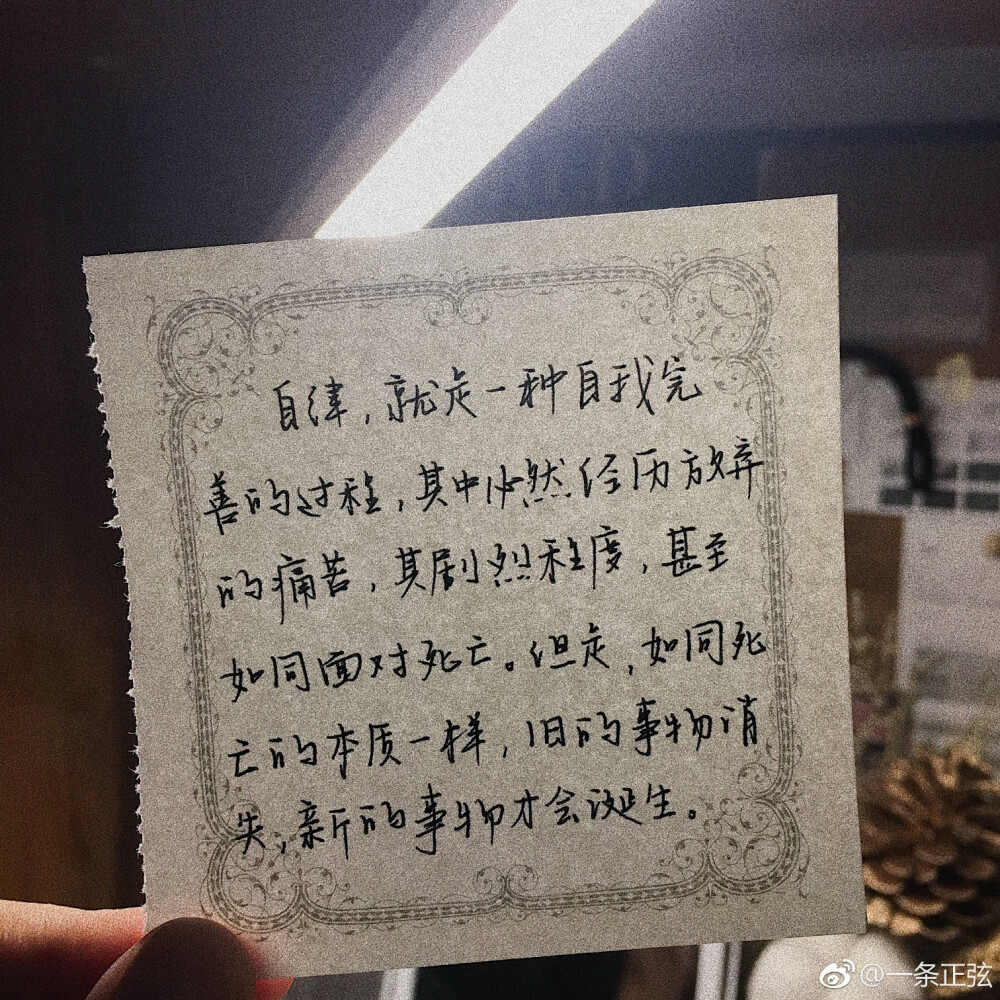 自律，就是一种自我完
善的过程，其中必然经历放弃
的痛苦，其剧烈程度，甚至
如同面对死亡。但是，如同死
亡的本质一样，旧的事物消
失，新的事物才会诞生。
@一条正弦